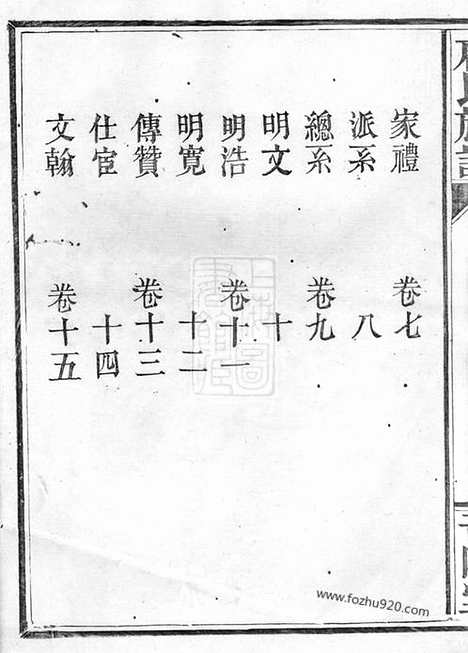 家禮 卷七
派系 八
總系 卷九
明文 十
明浩 卷十一
明寛 十二
傳贊 卷十三
仕宦 十四
文翰 卷十五
www.fozhu920.com